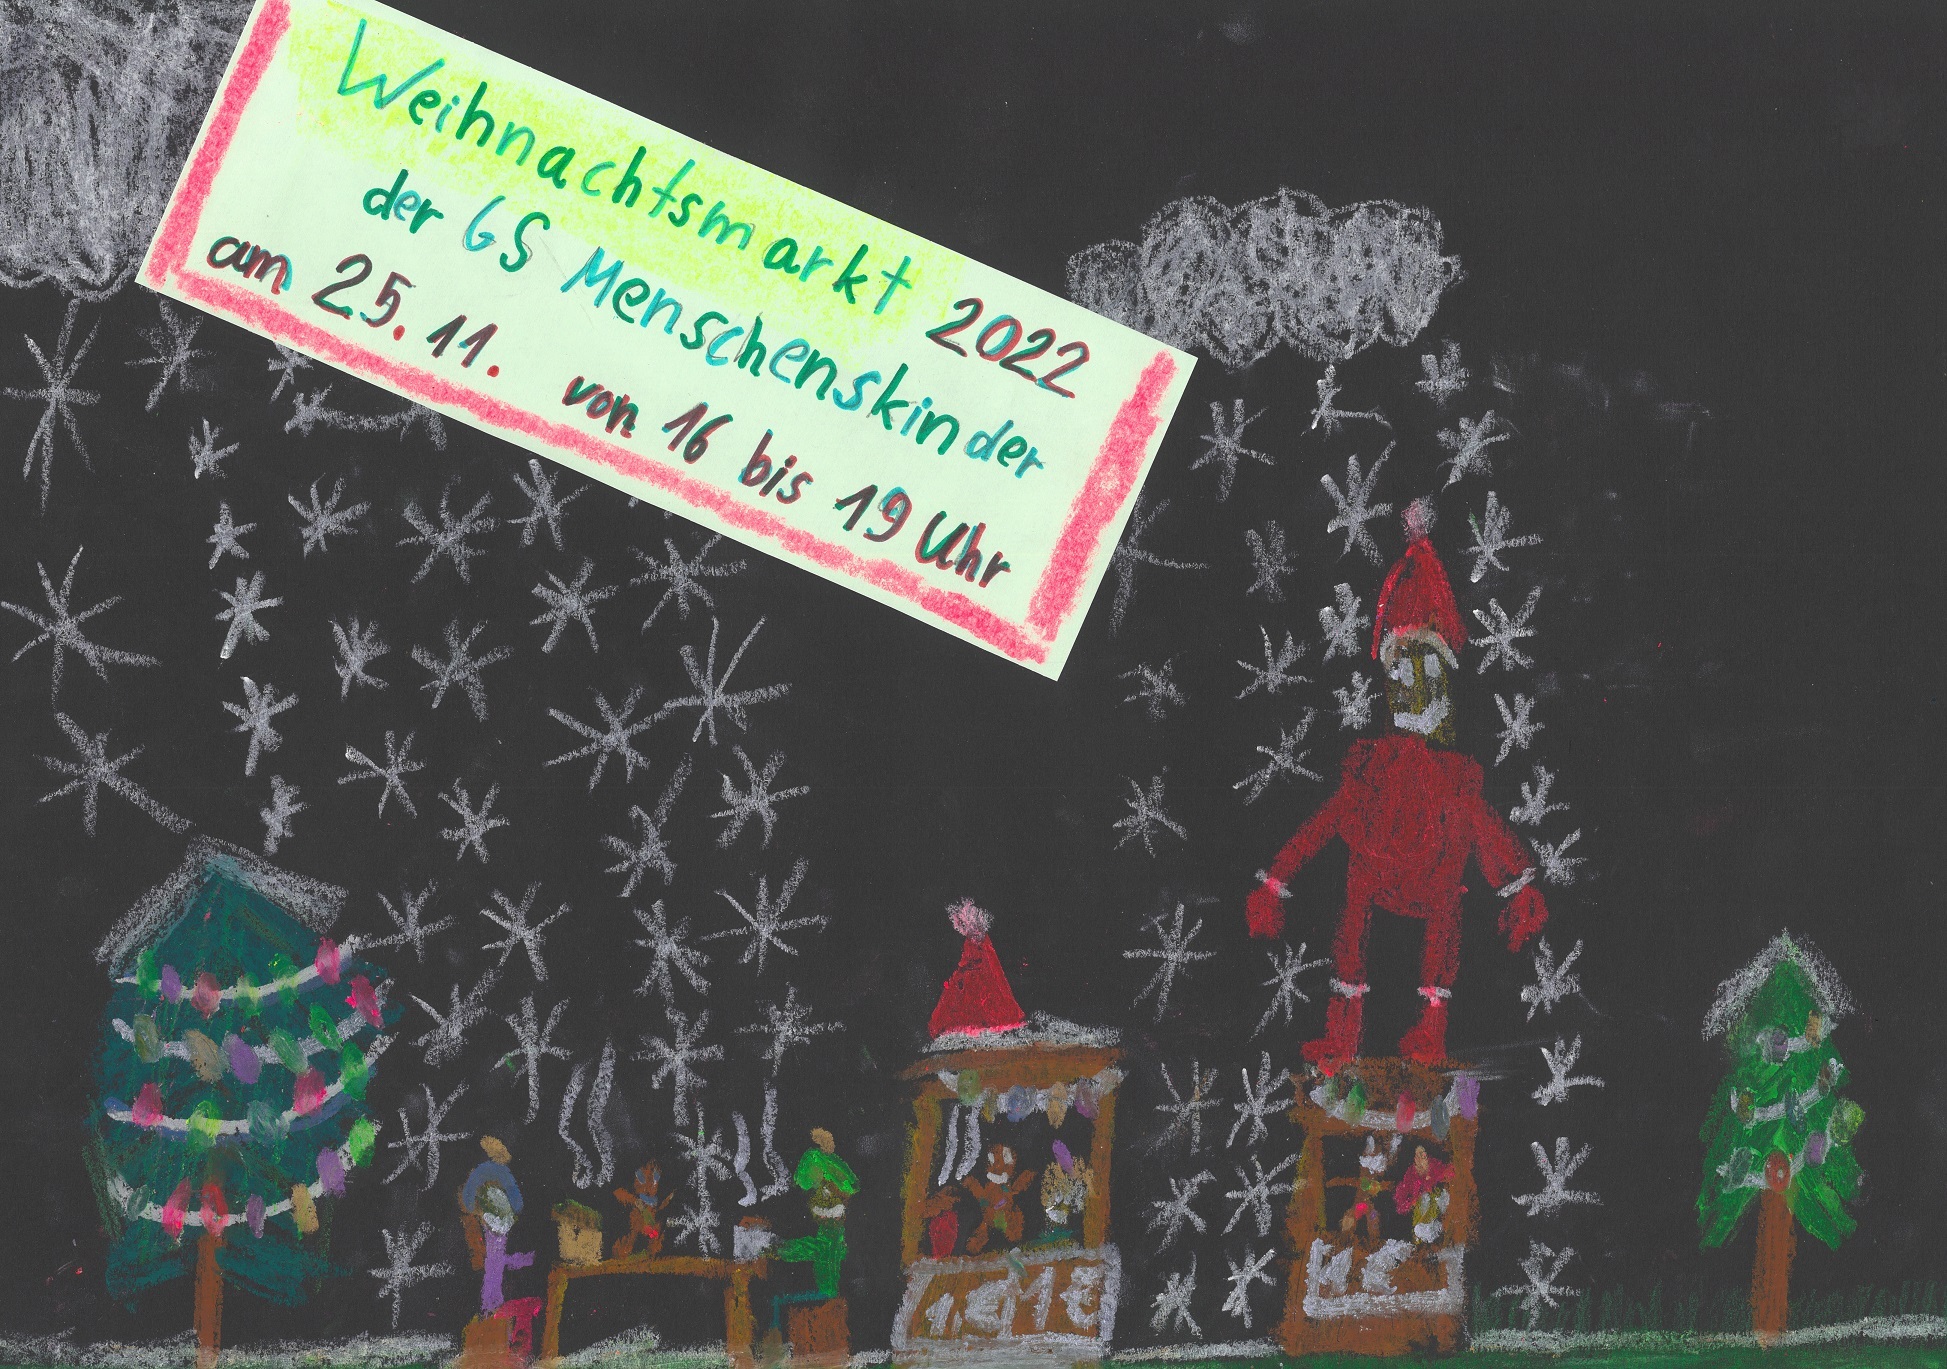 Weihnachtsmarkt 2022
der GS Menschenskinder
am 25.11. von 16 bis 19 Uhr
1€
1€